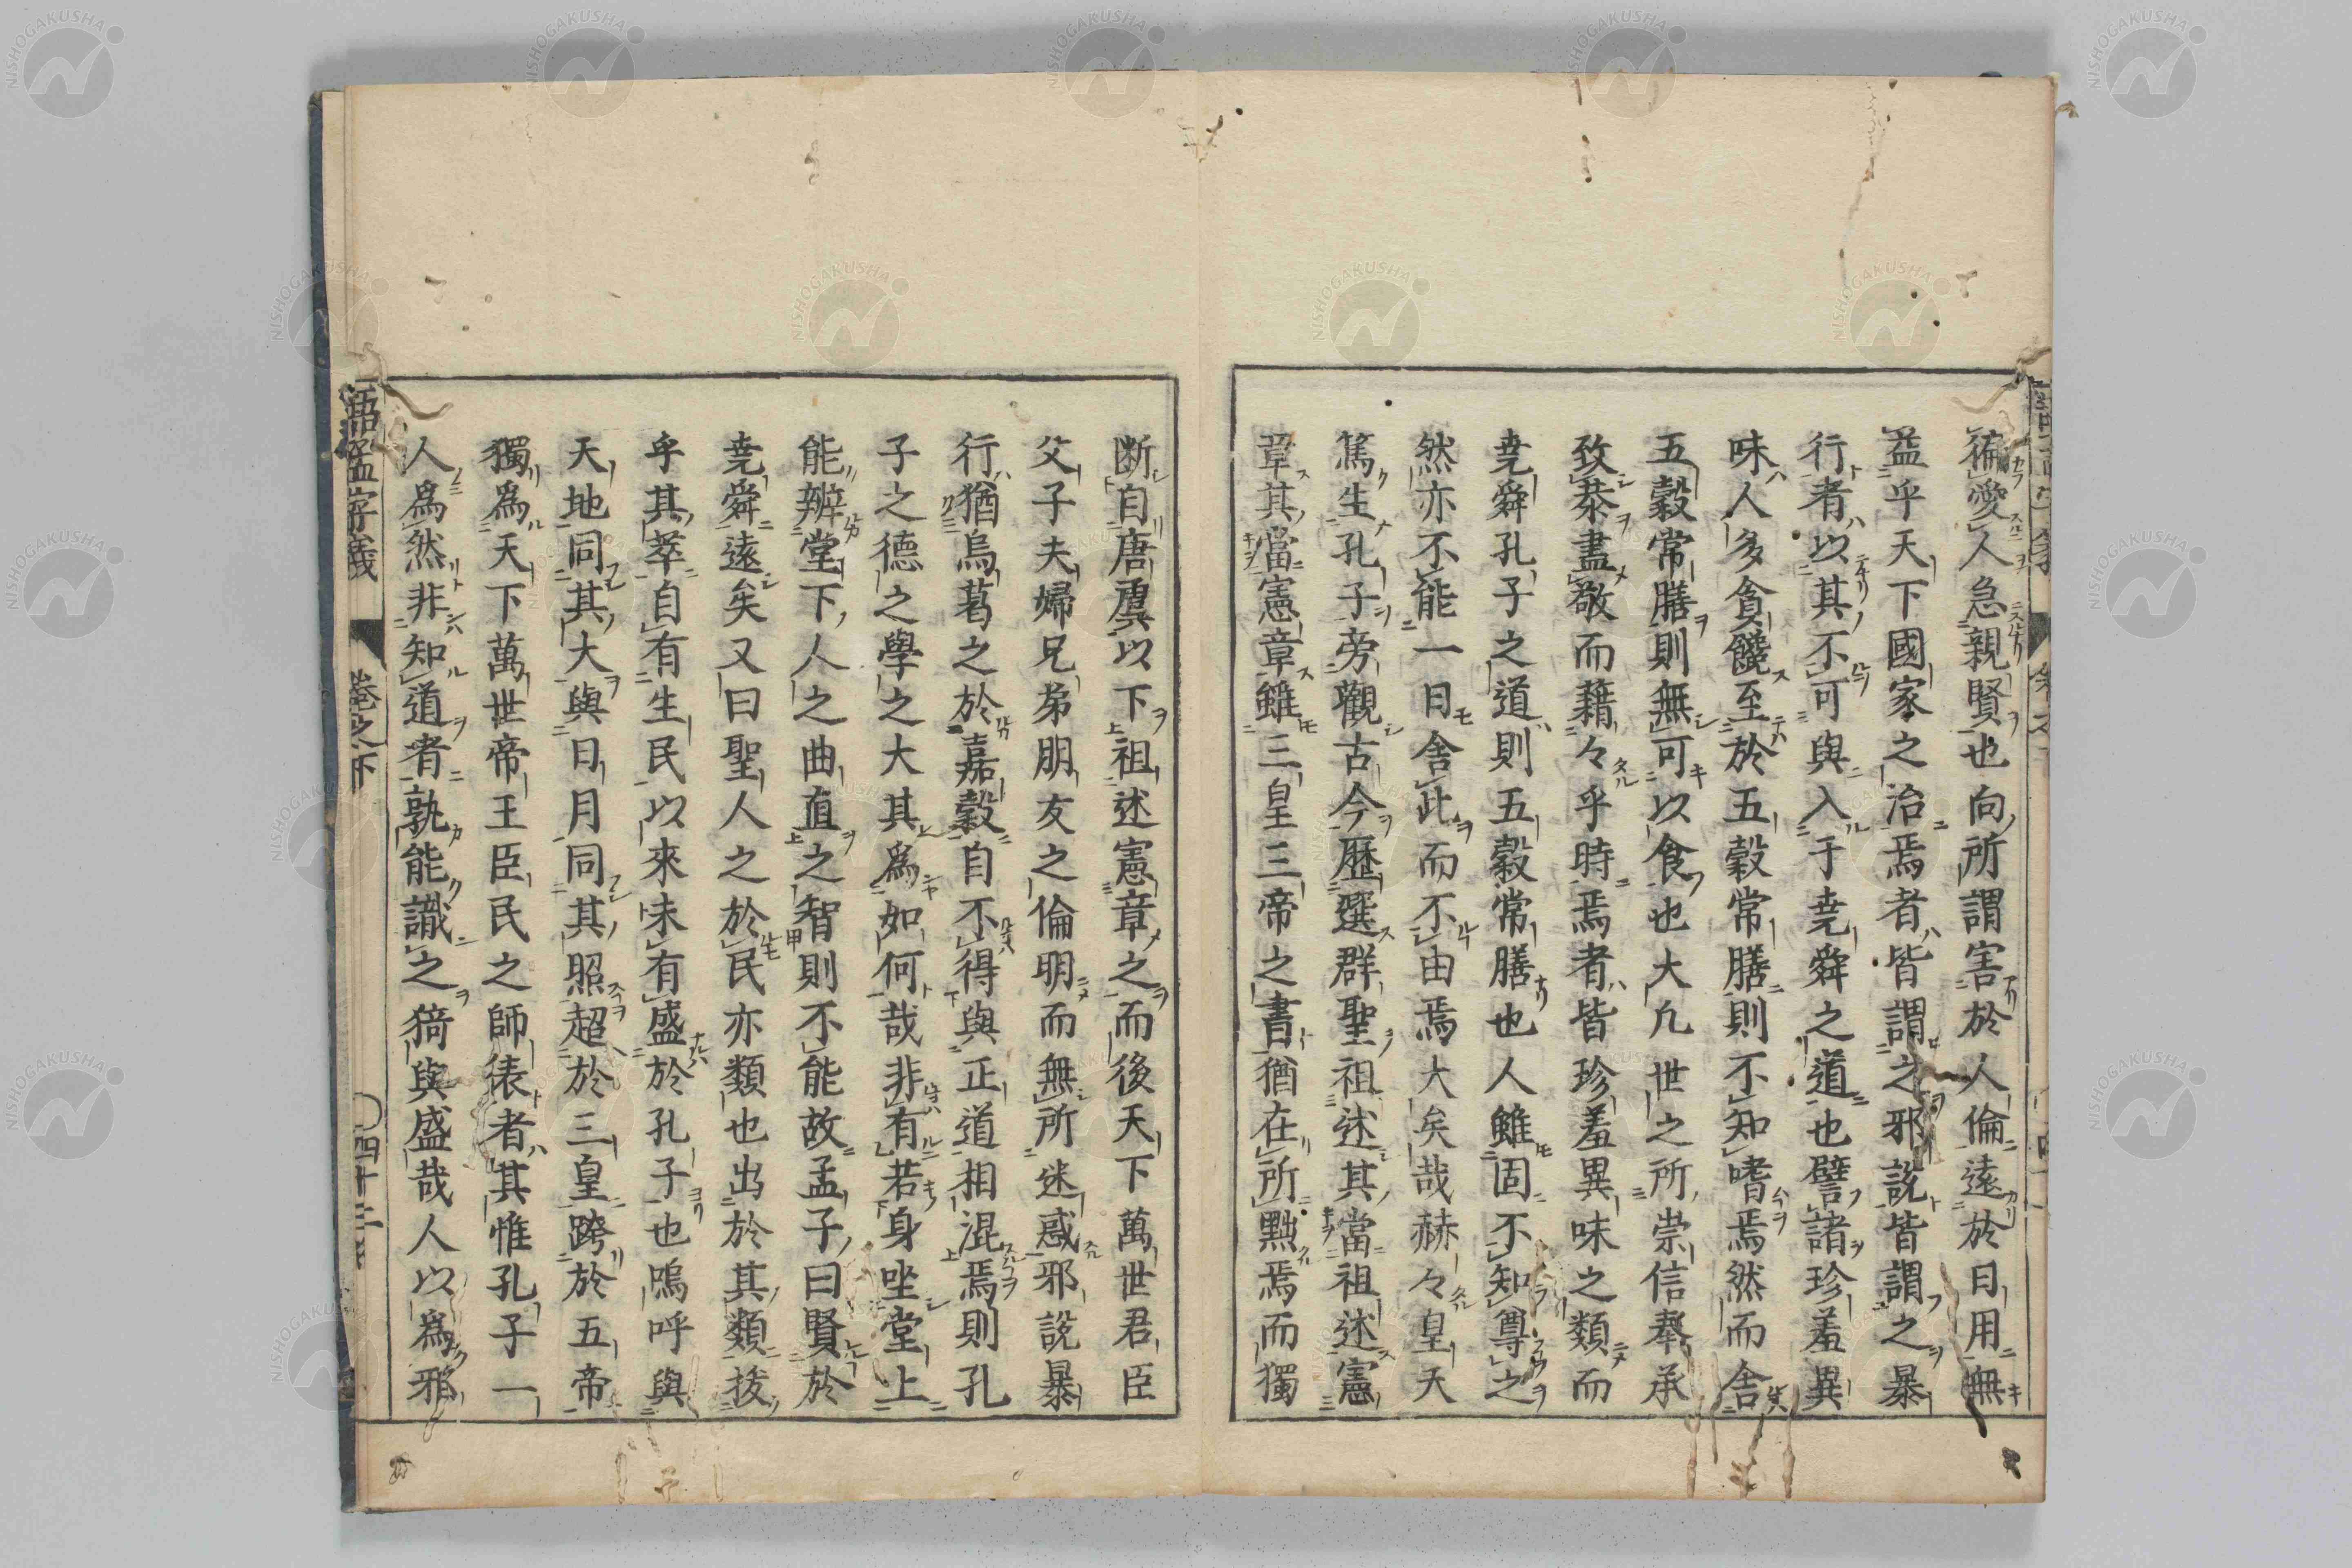 徧愛人急親賢也向所謂害於人倫遠於日用無
益乎天下國家之治焉者皆謂之邪說皆謂之暴
行者以其不可與入于堯舜之道也譬諸珍羞異
味人多貪饞至於五穀常膳則不知嗜焉然而舍
五穀常膳則無可以食也大凡世之所崇信奉承
致恭盡敬而藉々乎時焉者皆珍羞異味之類而
堯舜孔子之道則五穀常膳也人雖固不知尊之
然亦不能一日舍此而不由焉大矣哉赫々皇天
篤生孔子旁觀古今歷選群聖祖述其當祖述憲
章其當憲章雖三皇三帝之書猶在所黜焉而獨
断自唐虞以下祖述憲章之而後天下萬世君臣
父子夫婦兄弟朋友之倫明而無所迷惑邪說暴
行猶烏葛之於嘉穀自不得與正道相混焉則孔
子之德之學之大其為如何哉非有若身坐堂上
能辨堂下人之曲直之智則不能故孟子曰賢於
堯舜遠矣又曰聖人之於民亦類也出於其類拔
乎其萃自有生民以來未有盛於孔子也嗚呼與
天地同其大與日月同其照超於三皇跨於五帝
獨為天下萬世帝王臣民之師俵者其惟孔子一
人為然非知道者孰能識之猗與盛哉人以為邪
語孟字義
卷之下
四十二
NISHOGAKUSHA